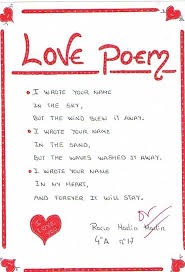 LOVE POEM
I WROTE YOUR NAME
IN THE SKY,
BUT THE WIND BLEW IT AWAY.
I WROTE YOUR NAME
IN THE SAND,
BUT THE WAVES WASHED IT AWAY.
I WROTE YOUR NAME
IN MY HEART,
AND FOREVER IT WILL STAY.
I LOVE
Rocio
4ºA nº17